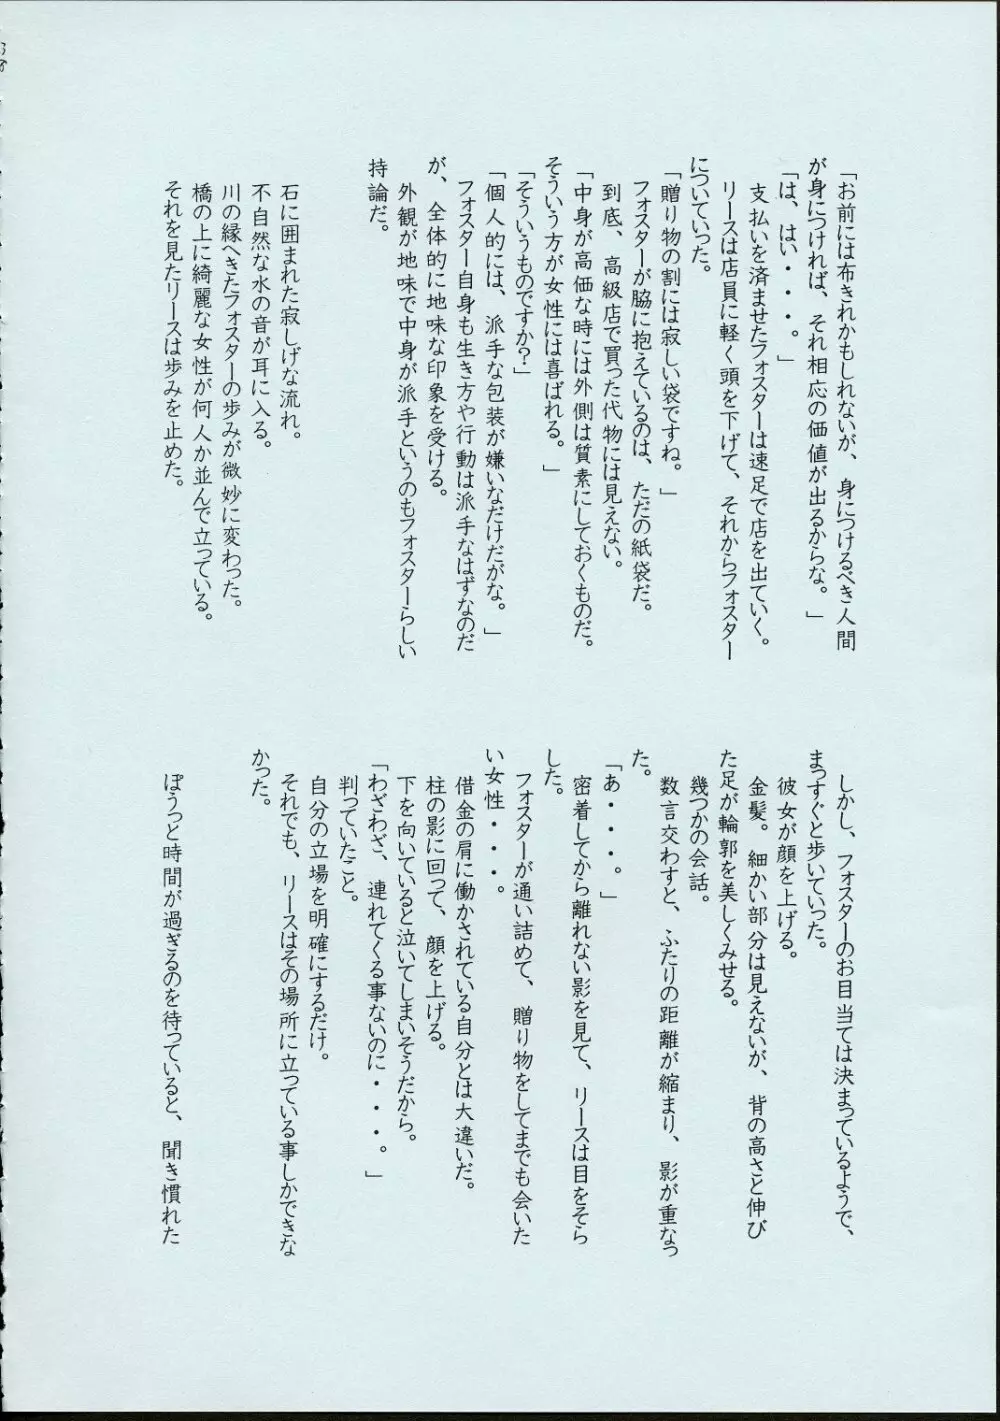 「お前には布きれかもしれないが、身につけるべき人間
が身につければ、それ相応の価値が出るからな。」
「は、はい・・・。」
支払いを済ませたフォスターは速足で店を出ていく。
リースは店員に軽く頭を下げて、それからフォスター
についていった。
「贈り物の割には寂しい袋ですね。」
フォスターが脇に抱えているのは、ただの紙袋だ。
到底、高級店で買った代物には見えない。
「中身が高価な時には外側は質素にしておくものだ。
そういう方が女性には喜ばれる。」
「そういうものですか?」
「個人的には、派手な包装が嫌いなだけだがな。」
フォスター自身も生き方や行動は派手なはずなのだ
が、全体的に地味な印象を受ける。
外観が地味で中身が派手というのもフォスターらしい
持論だ。
石に囲まれた寂しげな流れ。
不自然な水の音が耳に入る。
川の縁へきたフォスターの歩みが微妙に変わった。
橋の上に綺麗な女性が何人か並んで立っている。
それを見たリースは歩みを止めた。
しかし、フォスターのお目当ては決まっているようで、
まっすぐと歩いていった。
彼女が顔を上げる。
金髪。細かい部分は見えないが、背の高さと伸び
た足が輪郭を美しくみせる。
幾つかの会話。
数言交わすと、ふたりの距離が縮まり、影が重なっ
た。
「あ・・・。」
密着してから離れない影を見て、リースは目をそら
した。
フォスターが通い詰めて、贈り物をしてまでも会いた
い女性・・・。
借金の肩に働かされている自分とは大違いだ。
柱の影に回って、顔を上げる。
下を向いていると泣いてしまいそうだから。
「わざわざ、連れてくる事ないのに・・・。」
判っていたこと。
自分の立場を明確にするだけ。
それでも、リースはその場所に立っている事しかできな
かった。
ぼうっと時間が過ぎるのを待っていると、聞き慣れた